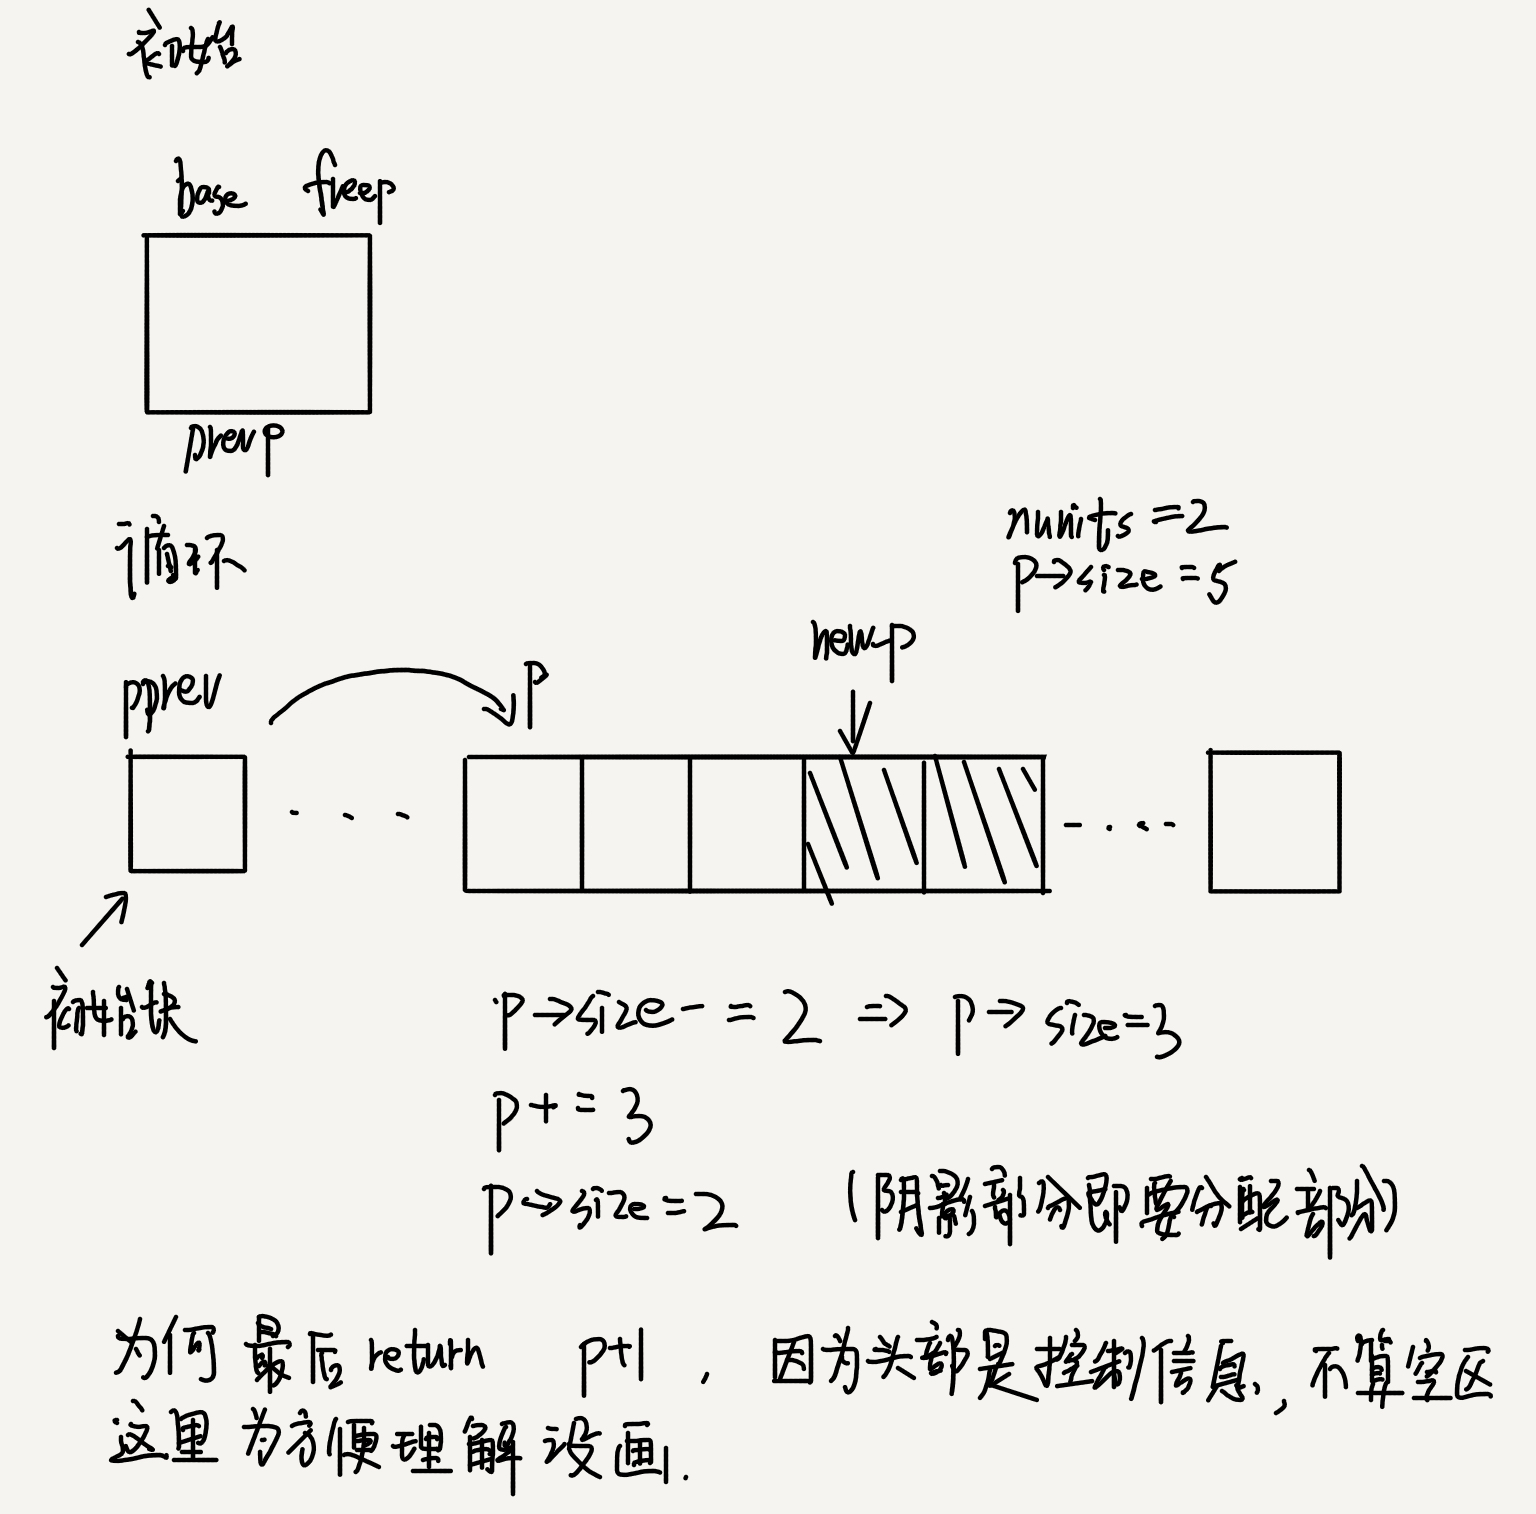 初始
base freep
prevp
循环
nunits =2
p→size =5
newp
pprev
p
初始块
p→size -= 2 => p→size=3
p+=3
p→size=2 (阴影部分即要分配部分)
为何最后return p+1，因为头部是控制信息，不算空区
这里为方便理解没画.